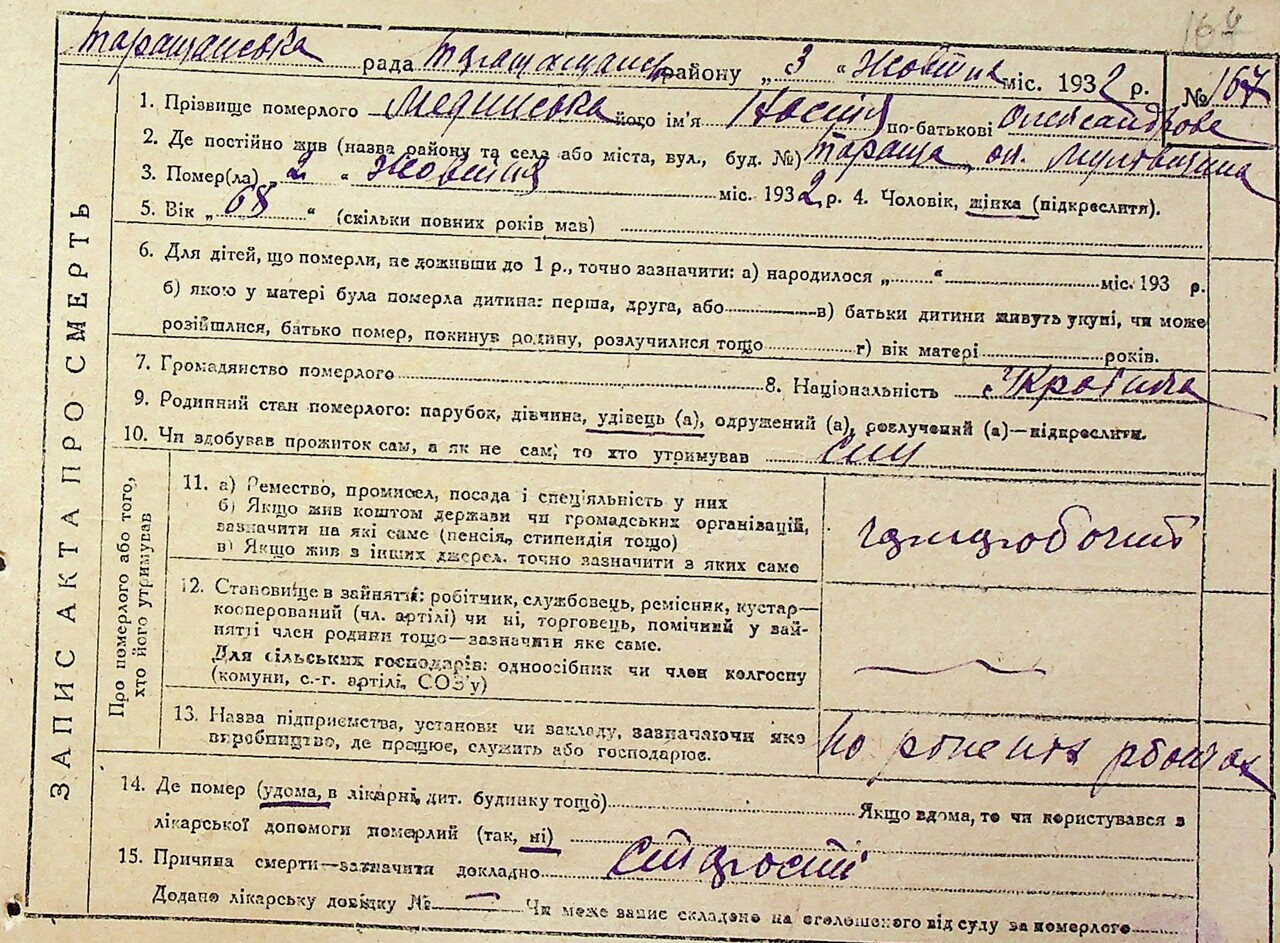 167
Таращанська рада Таращанськ району „ 3 “ Жовтня міс. 1932 р. № 167
1. Прізвище померлого Мединська його ім'я Настя по-батькові Олександрове
2. Де постійно жив (назва району та села або міста, вул., буд. №) Тараща
3. Помер(ла) „ 2 “ Жовтня міс. 1932 р. 4. Чоловік, жінка (підкреслити).
5. Вік „ 68 “ (скільки повних років мав)
6. Для дітей, що померли, не доживши до 1 р., точно зазначити: а) народилося „ “ міс. 193 р.
б) якою у матері була померла дитина: перша, друга, або в) батьки дитини живуть укупі, чи може
розійшлися, батько помер, покинув родину, розлучилися тощо г) вік матері років.
7. Громадянство померлого 8. Національність Українка
9. Родинний стан померлого: парубок, дівчина, удівець (а), одружений (а), розлучений (а)—підкреслити.
10. Чи здобував прожиток сам, а як не сам, то хто утримував син
ЗАПИС АКТА ПРО СМЕРТЬ
Про померлого або того, хто його утримував
11. а) Ремество, промисел, посада і спеціяльність у них
б) Якщо жив коштом держави чи громадських організацій,
зазначити на які саме (пенсія, стипендія тощо)
в) Якщо жив з інших джерел, точно зазначити з яких саме
12. Становище в зайнятті: робітник, службовець, ремісник, кустар—
кооперований (чл. артілі) чи ні, торговець, помічний у зай-
нятті член родини тощо—зазначити яке саме.
Для сільських господарів: одноосібник чи член колгоспу
(комуни, с.-г. артілі, СОЗ'у)
13. Назва підприємства, установи чи закладу, зазначаючи яке
виробництво, де працює, служить або господарює.
на різних роботах
14. Де помер (удома, в лікарні, дит. будинку тощо) Якщо вдома, то чи користувався з
лікарської допомоги померлий (так, ні)
15. Причина смерти—зазначити докладно старости
Додано лікарську довідку № — Чи може запис складено на оголошеного від суду за померлого